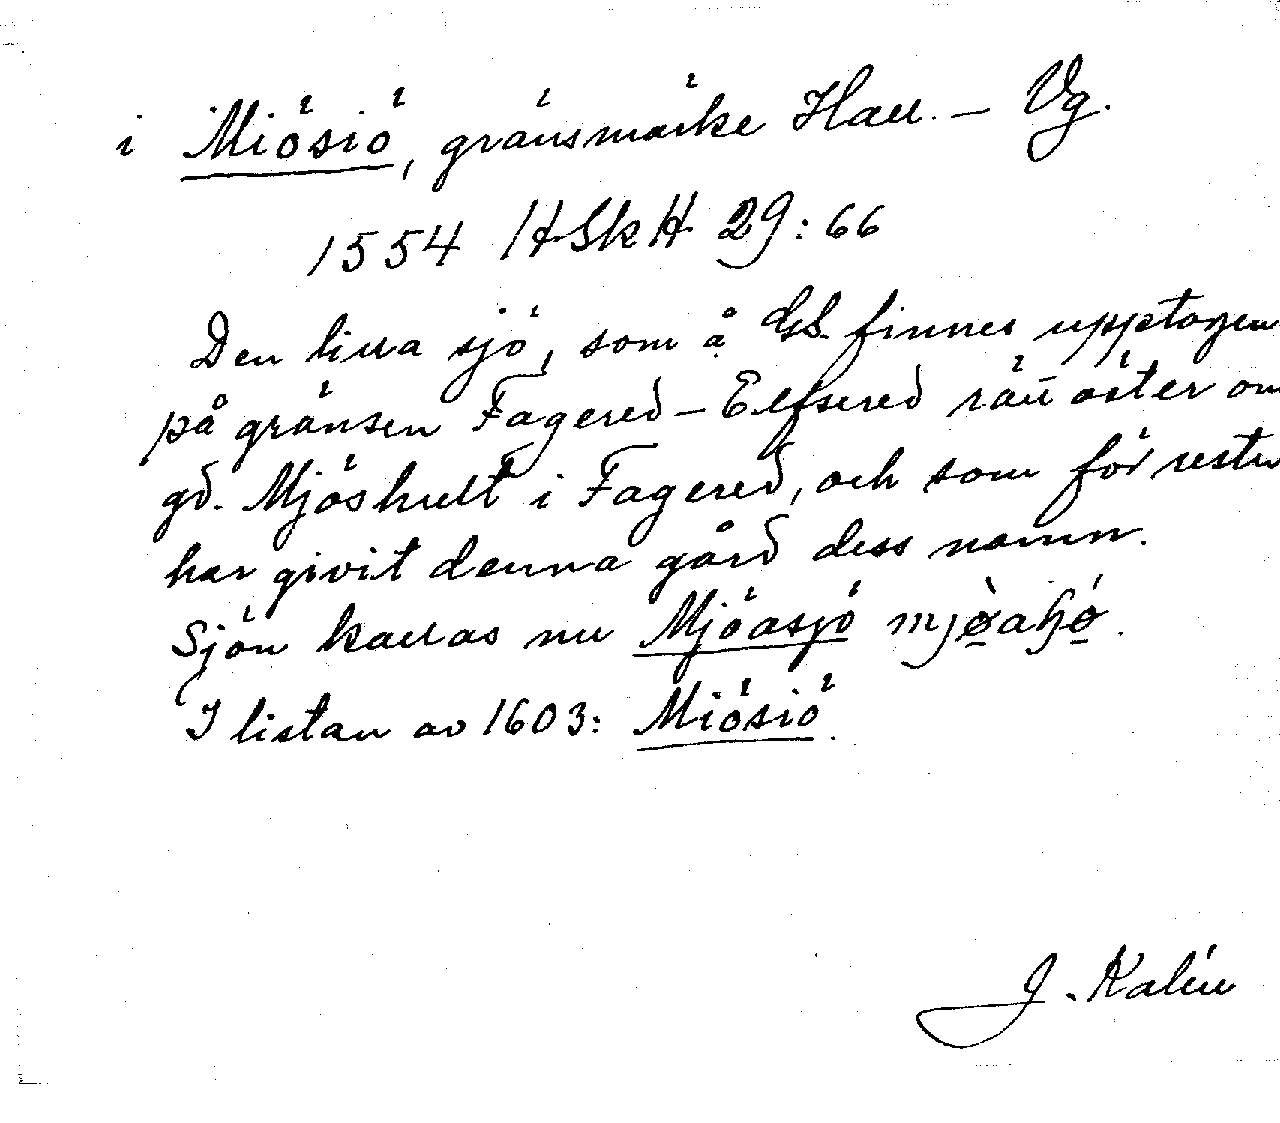 i Miösiö, gränsmärke Hall. – Vg.
1554 HSkH 29:66
Den lilla sjö, som å GS. finnes upptagen
på gränsen Fagered – Elfsered rätt öster om
gd. Mjöshult i Fagered, och som för resten
har givit denna gård dess namn.
Sjön kallas nu Mjöasjö
I listan av 1603: Miösiö.
J. Kalén